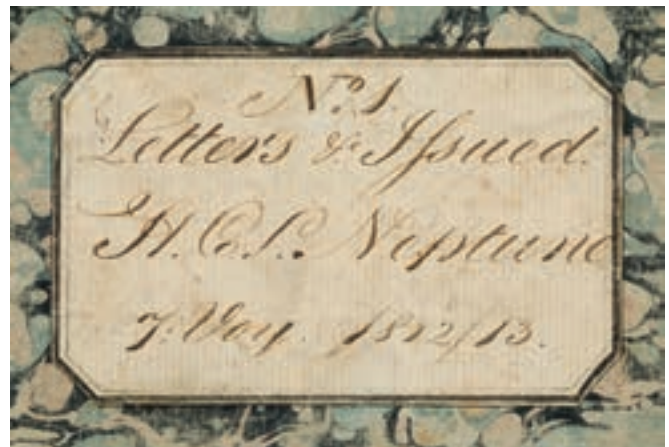 No. 1.
Letters &c Issued.
H.C.S. Neptune
7. Voy. 1812/13.